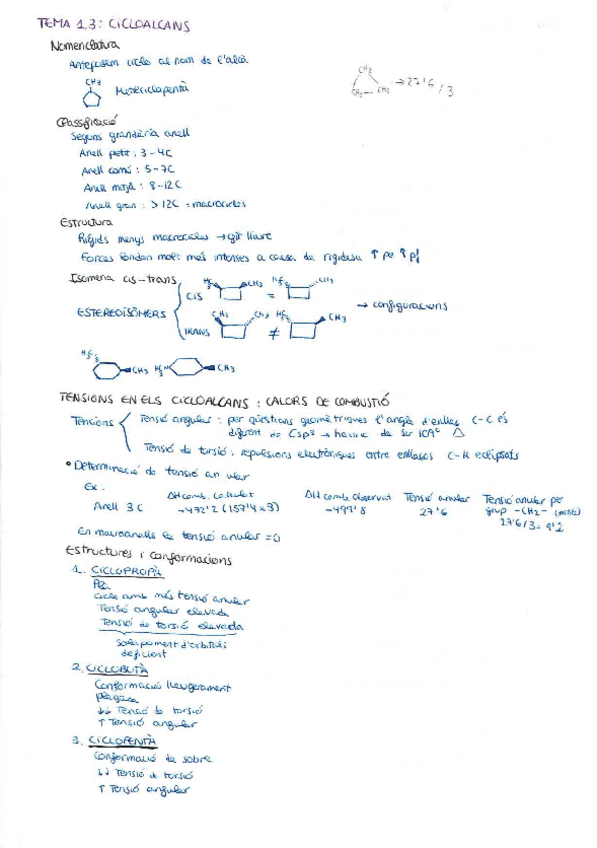 TEMA 1.3: CICLOALCANS
Nomenclatura
Anteposem ciclo al nom de l'alcà
CH3
Metilciclopentà
CH2
CH2 — CH2 → 27'6 / 3
Classificació
Segons grandària anell
Anell petit: 3-4C
Anell comú: 5-7C
Anell mitjà: 8-12C
Anell gran: >12C = macrocicles
Estructura
Rígids menys macrocicles → gir lliure
Forces london molt més intenses a causa de rigidesa ↑ pe ↑ pf
Isomeria cis-trans
ESTEREOISÒMERS
CIS H3C CH3 = H3C CH3
TRANS CH3 CH3 ≠ H3C CH3
→ configuracions
H3C CH3 H3C CH3
TENSIONS EN ELS CICLOALCANS: CALORS DE COMBUSTIÓ
Tensions
Tensió angular: per qüestions geomètriques l'angle d'enllaç C-C és
diferent de Csp3 → hauria de ser 109º
Tensió de torsió: repulsions electròniques entre enllaços C-H eclipsats
• Determinació de tensió anular
Ex:
ΔH comb. calculat ΔH comb. observat Tensió anular Tensió anular per
grup -CH2-
Anell 3C -472'2 (157'4 × 3) -499'8 27'6 27'6/3 = 9'2
En macroanells la tensió anular = 0
Estructures i conformacions
1. CICLOPROPÀ
Cicle amb més tensió anular
Tensió angular elevada
Tensió de torsió elevada
Solapament d'orbitals
deficient
2. CICLOBUTÀ
Conformació lleugerament
plegada
↓↓ Tensió de torsió
↑ Tensió angular
3. CICLOPENTÀ
Conformació de sobre
↓↓ Tensió de torsió
↑ Tensió angular